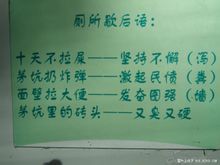 厕所歇后语：
十天不拉屎——坚持不解（泻）
茅坑扔炸弹——激起民愤（粪）
面壁拉大便——发奋图强（墙）
茅坑里的砖头——又臭又硬